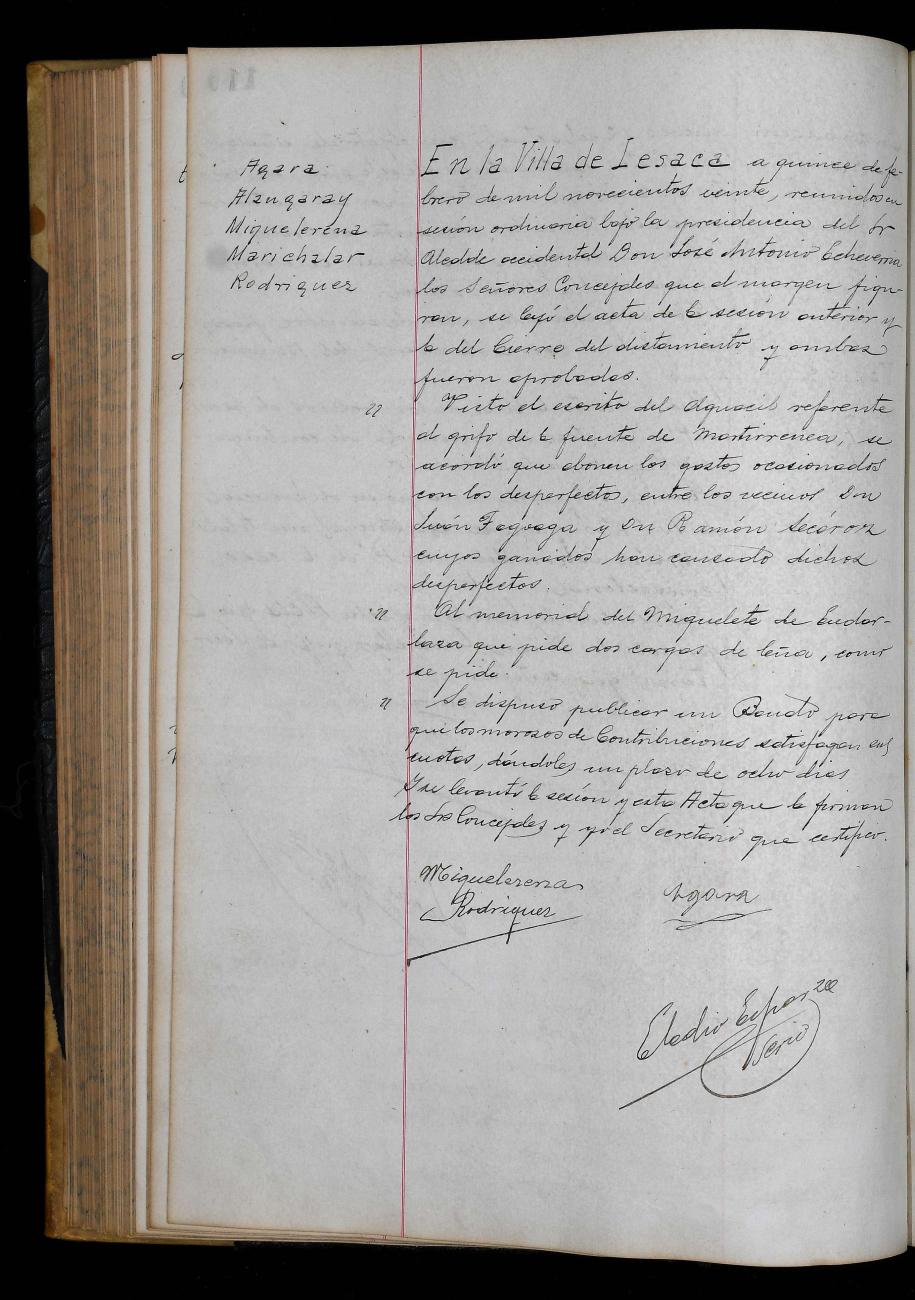 Agara
Alangaray
Miquelerena
Marichalar
Rodriguez
En la Villa de Lesaca a quince de fe-
brero de mil novecientos veinte, reunidos en
sesión ordinaria bajo la presidencia del Sr
Alcalde accidental Don José Antonio Echeverria
los Señores Concejales que al margen figu-
ran, se leyó el acta de la sesión anterior y
la del Cierre del alistamiento y ambas
fueron aprobadas.
" Visto el escrito del Alguacil referente
al grifo de la fuente de Mantirrenea, se
acordó que abonen los gastos ocasionados
con los desperfectos, entre los vecinos Dn
Juán Fagoaga y Dn Ramón
cuyos ganados han causado dichos
desperfectos.
" Al memorial del Miquelete de Endar-
laza que pide dos cargas de leña, como
se pide.
" Se dispuso publicar un Bando para
que los morosos de Contribuciones satisfagan sus
cuotas, dándoles un plazo de ocho dias
Y se levantó la sesión y esta Acta que la firman
los Srs Concejales y yo el Secretario que certifico.
Miquelerena
Agara
Rodriguez
Eladio Esparza
Serio